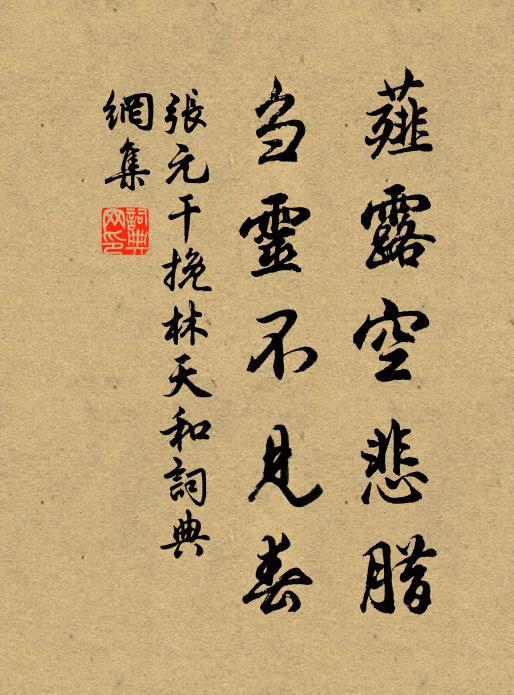 薤露空悲腊
刍靈不見春
張元干挽林天和詞典
網集
詞典
网印